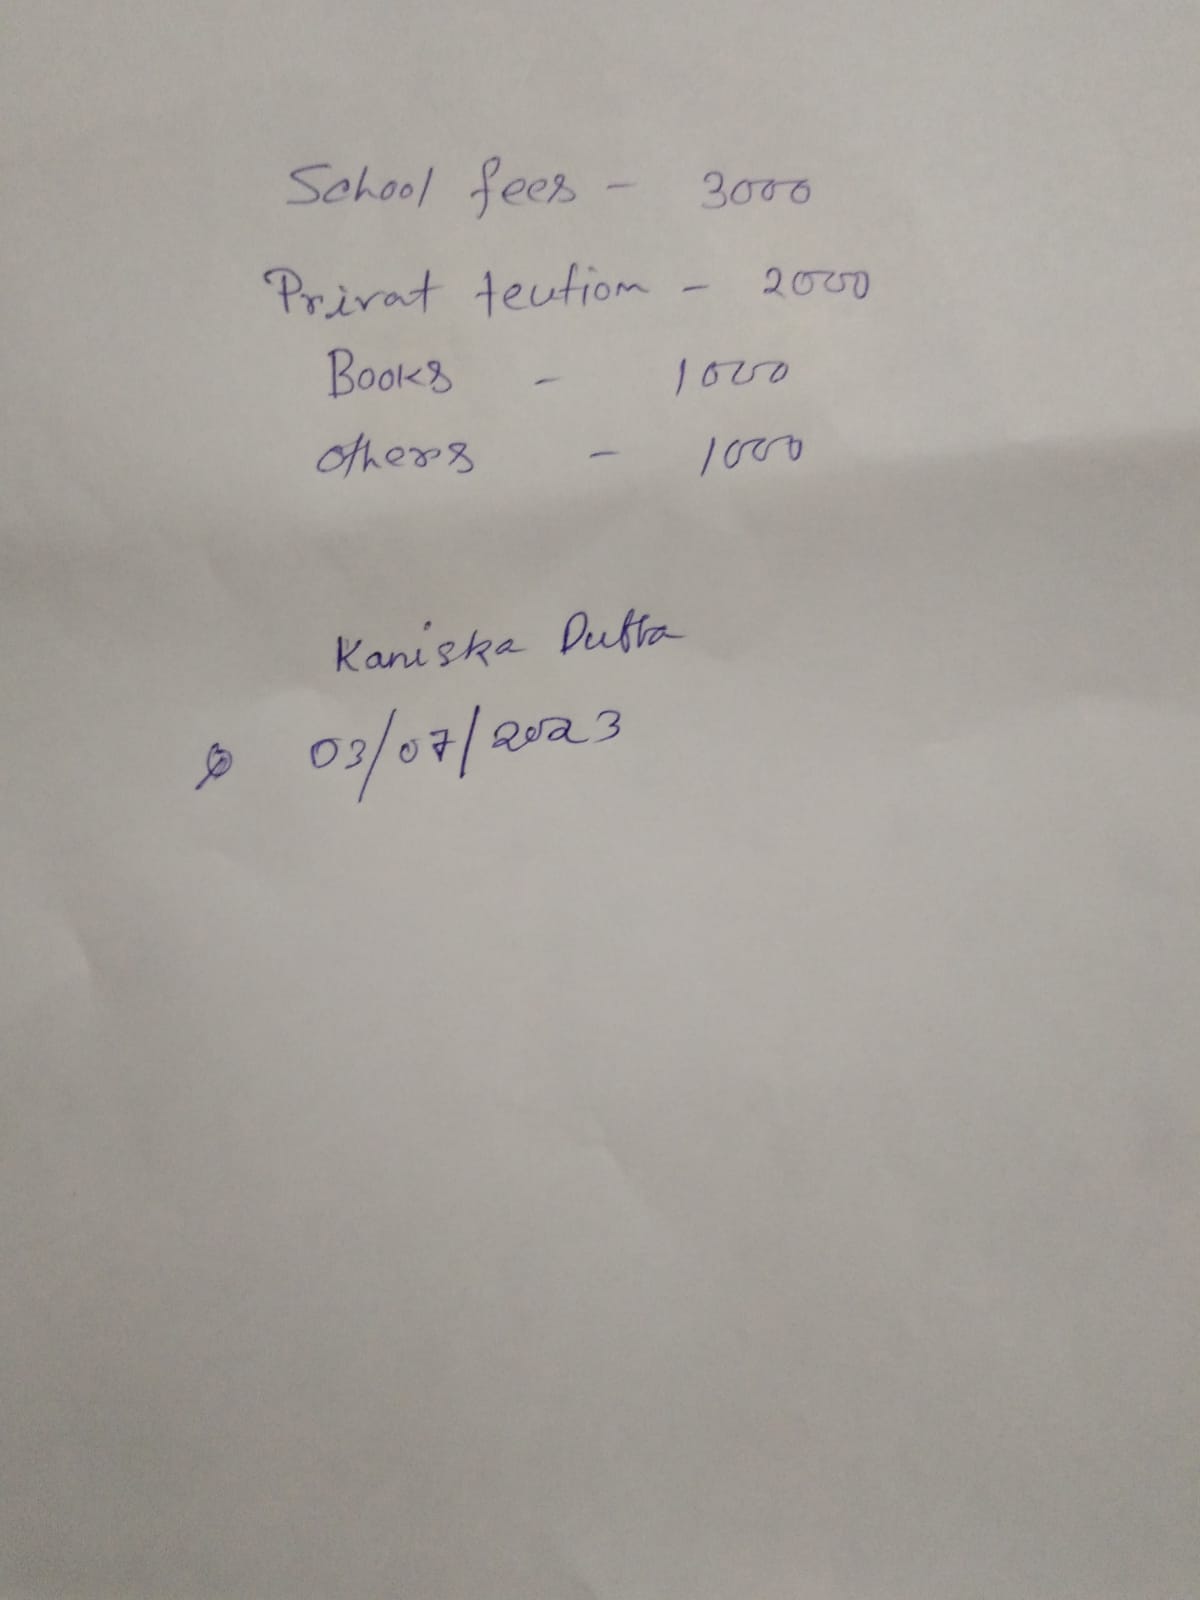 School fees - 3000
Privat teution - 2000
Books - 1000
others - 1000
Kaniska Dutta
03/07/2023